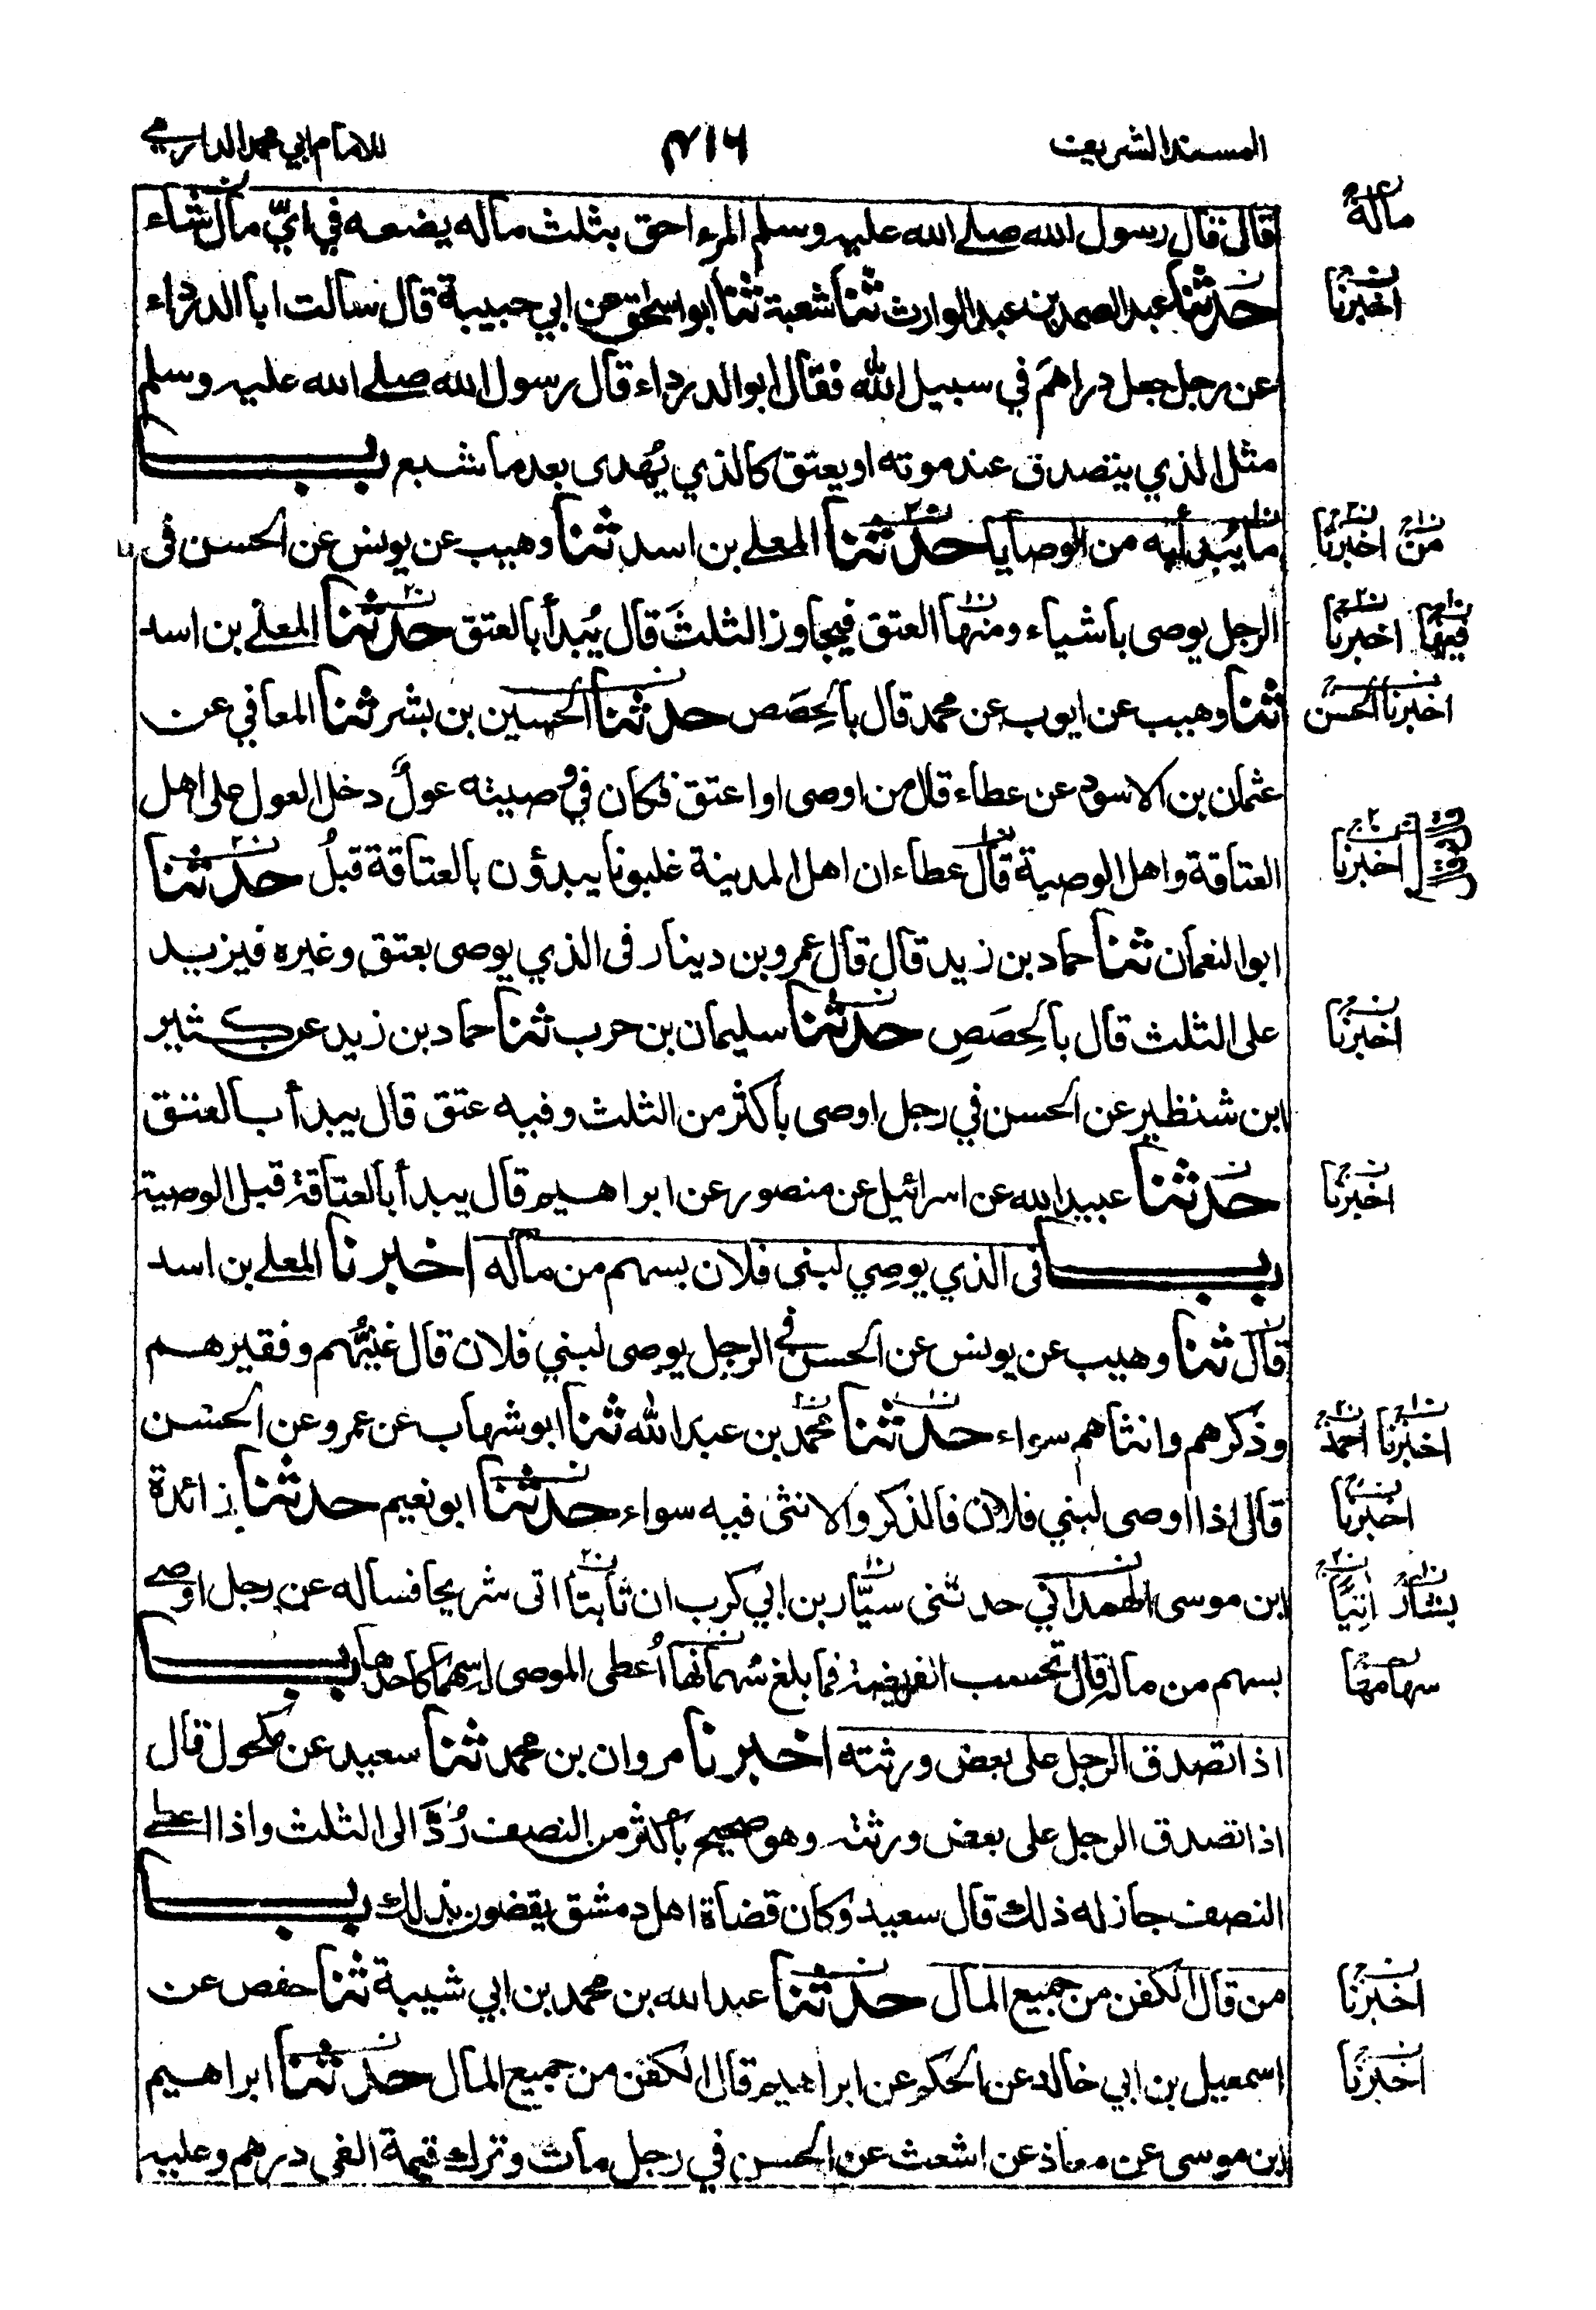 المسند الشريف
٤١٦
للامام ابي محمد الدارمي
قال قال رسول الله صلى الله عليه وسلم المرء احق بثلث ماله يضعه في ايّ مال شاء
ماله
حدثنا عبد الصمد بن عبد الوارث ثنا شعبة ثنا ابو اسحق عن ابي حبيبة قال سالت ابا الدرداء
اخبرنا
عن رجل جعل دراهمَ في سبيل الله فقال ابو الدرداء قال رسول الله صلى الله عليه وسلم
مثل الذي يتصدق عند موته او يعتق كالذي يُهدى بعد ما شبع باب
ما يُبدأ به من الوصايا حدثنا المعلى بن اسد ثنا وهيب عن يونس عن الحسن في
من اخبرنا
الرجل يوصى باشياء ومنها العتق فيجاوز الثلثَ قال يُبدأ بالعتق حدثنا المعلى بن اسد
فيها اخبرنا
ثنا وهيب عن ايوب عن محمد قال بالحِصَص حدثنا الحسين بن بشر ثنا المعافي عن
اخبرنا الحسن
عثمان بن الاسود عن عطاء قال من اوصى او اعتق فكان في وصيته عولٌ دخل العول على اهل
العتاقة واهل الوصية قال عطاء ان اهل المدينة غلبونا يبدؤن بالعتاقة قبلُ حدثنا
اخبرنا
ابو النعمان ثنا حماد بن زيد قال قال عمرو بن دينار فى الذي يوصى بعتق وغيره فيزيد
على الثلث قال بالحِصَصِ حدثنا سليمان بن حرب ثنا حماد بن زيد عن كثير
اخبرنا
ابن شنظير عن الحسن في رجل اوصى باكثر من الثلث وفيه عتق قال يبدأ بالعتق
حدثنا عبيد الله عن اسرائيل عن منصور عن ابراهيم قال يبدأ بالعتاقة قبل الوصية
اخبرنا
باب فى الذي يوصِي لبنى فلان بسهم من ماله اخبرنا المعلى بن اسد
قال ثنا وهيب عن يونس عن الحسن في الرجل يوصى لبني فلان قال غنيُّهم وفقيرهم
وذكرهم وانثاهم سواء حدثنا محمد بن عبد الله ثنا ابو شهاب عن عمرو عن الحسن
اخبرنا احمد
قال اذا اوصى لبني فلان فالذكر والانثى فيه سواء حدثنا ابو نعيم حدثنا زائدة
اخبرنا
ابن موسى الهمداني حدثنى سيّار بن ابي كرب ان ثابتا اتى شريحا فساله عن رجل اوصى
بشار اتيًا
بسهم من ماله قال تحسب الفريضة فما بلغ سُهمانها اُعطى الموصى له سهما كاحدها باب
سهامها
اذا تصدق الرجل على بعض ورثته اخبرنا مروان بن محمد ثنا سعيد عن مكحول قال
اذا تصدق الرجل على بعض ورثته وهو صحيح باكثر من النصف رُدَّ الى الثلث واذا اعطى
النصف جاز له ذلك قال سعيد وكان قضاة اهل دمشق يقضون بذلك باب
من قال الكفن من جميع المال حدثنا عبد الله بن محمد بن ابي شيبة ثنا حفص عن
اخبرنا
اسمعيل بن ابي خالد عن الحكم عن ابراهيم قال الكفن من جميع المال حدثنا ابراهيم
اخبرنا
ابن موسى عن معاذ عن اشعث عن الحسن في رجل مات وترك قيمة الفى درهم وعليه